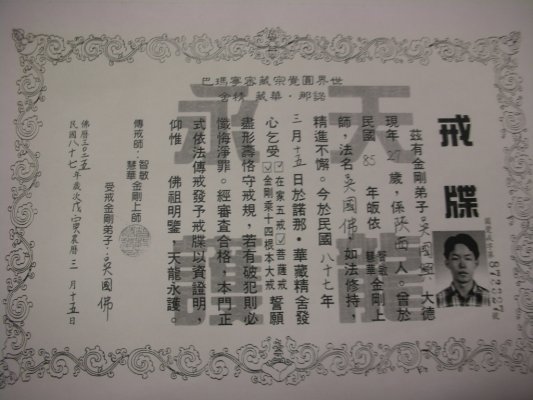 世界圓覺宗藏密寧瑪巴
諾那・華藏精舍
戒牒
圓覺戒字第872227號
茲有金剛弟子吳國 大德
現年27歲,係陝西人。曾於
民國85年皈依智敏慧華金剛上
師,法名吳國佛,如法修持,
精進不懈。今於民國八十七年
三月十五日於諾那・華藏精舍發
心乞受☑在家五戒☑菩薩戒
☑金剛乘十四根本大戒 誓願
盡形壽恪守戒規,若有破犯則必
懺悔淨罪。經審查合格,本門正
式依法傳戒發予戒牒以資證明,
仰惟 佛祖明鑒,天龍永護。
傳戒師:智敏慧華金剛上師
受戒金剛弟子:吳國佛
佛曆三〇二五
民國八十七年歲次戊寅農曆三月十五日
天龍
永護